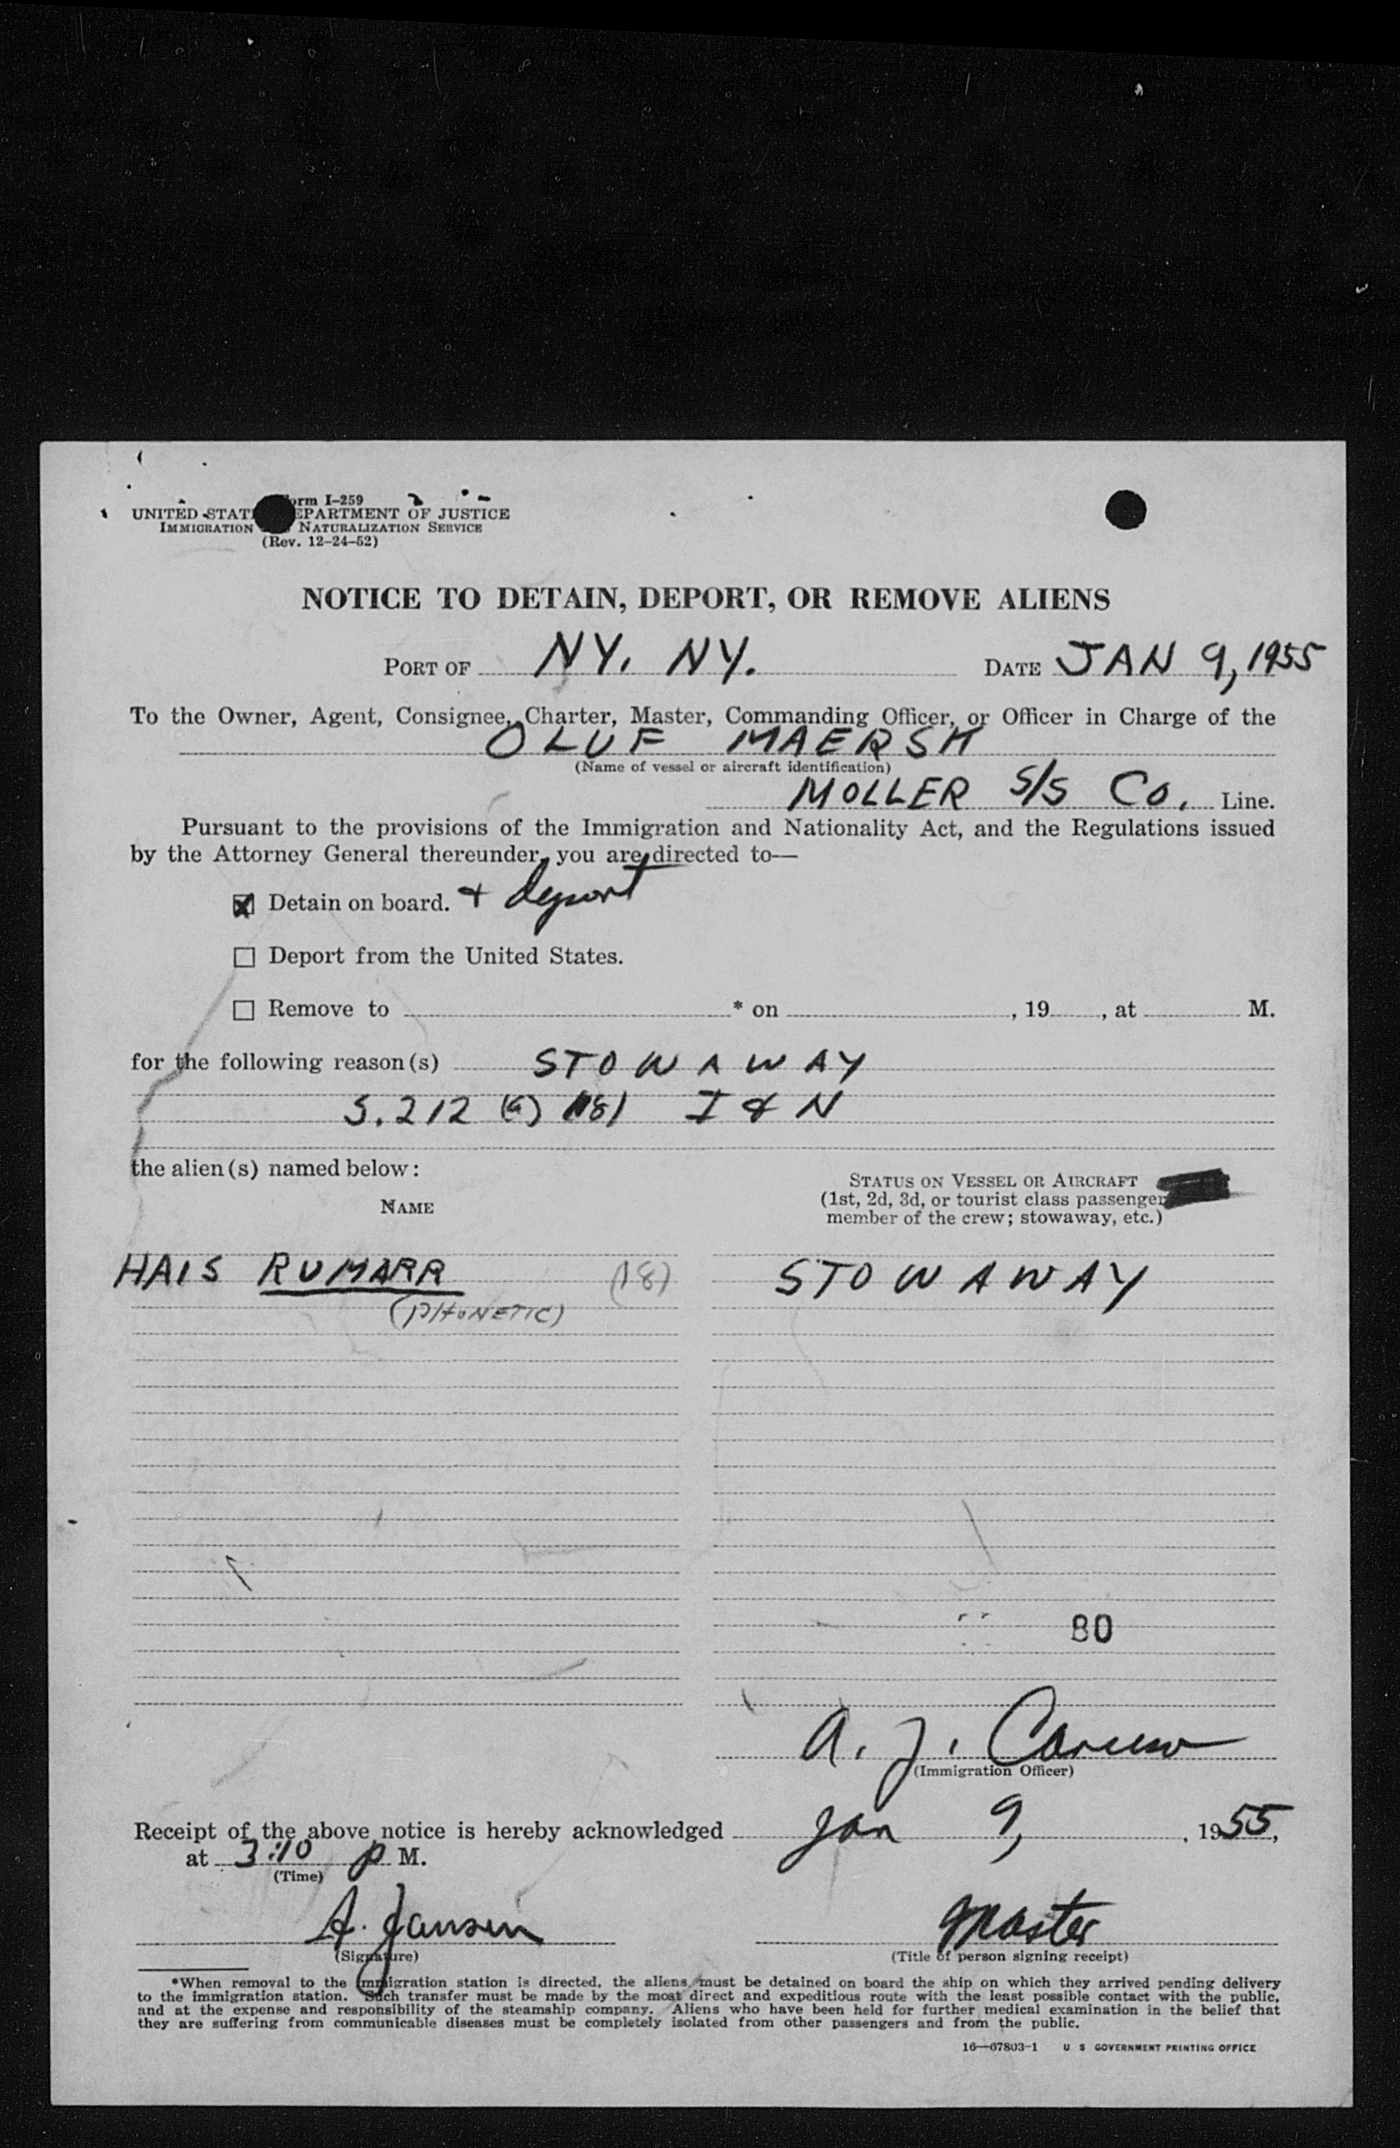 Form I-259
UNITED STATES DEPARTMENT OF JUSTICE
IMMIGRATION NATURALIZATION SERVICE
(Rev. 12-24-52)
NOTICE TO DETAIN, DEPORT, OR REMOVE ALIENS
PORT OF NY. NY. DATE JAN 9, 1955
To the Owner, Agent, Consignee, Charter, Master, Commanding Officer, or Officer in Charge of the
OLUF MAERSK
(Name of vessel or aircraft identification)
MOLLER S/S Co. Line.
Pursuant to the provisions of the Immigration and Nationality Act, and the Regulations issued
by the Attorney General thereunder, you are directed to—
☒ Detain on board. + deport
☐ Deport from the United States.
☐ Remove to * on , 19 , at M.
for the following reason(s) STOWAWAY
S. 212 (a) (18) I & N
the alien(s) named below:
STATUS ON VESSEL OR AIRCRAFT
(1st, 2d, 3d, or tourist class passenger
member of the crew; stowaway, etc.)
NAME
HAIS RUMARR (18) STOWAWAY
(PHONETIC)
80
A. J. Caruso
(Immigration Officer)
Receipt of the above notice is hereby acknowledged Jan 9, 1955,
at 3:10 p M.
(Time)
A. Jansen Master
(Signature) (Title of person signing receipt)
*When removal to the immigration station is directed, the aliens must be detained on board the ship on which they arrived pending delivery
to the immigration station. Such transfer must be made by the most direct and expeditious route with the least possible contact with the public,
and at the expense and responsibility of the steamship company. Aliens who have been held for further medical examination in the belief that
they are suffering from communicable diseases must be completely isolated from other passengers and from the public.
16—67803-1 U S GOVERNMENT PRINTING OFFICE